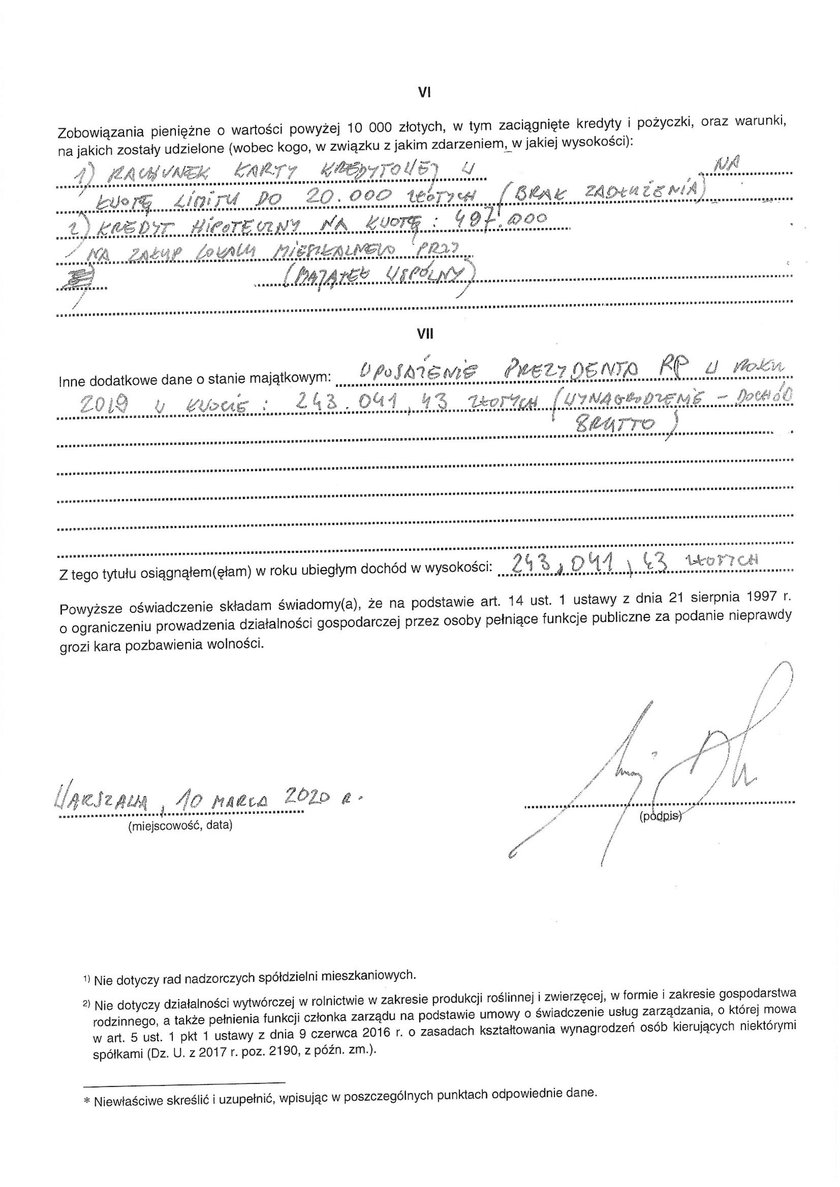 VI
Zobowiązania pieniężne o wartości powyżej 10 000 złotych, w tym zaciągnięte kredyty i pożyczki, oraz warunki,
na jakich zostały udzielone (wobec kogo, w związku z jakim zdarzeniem, w jakiej wysokości):
1) RACHUNEK KARTY KREDYTOWEJ W NA
KWOTĘ LIMITU DO 20.000 ZŁOTYCH (BRAK ZADŁUŻENIA)
2) KREDYT HIPOTECZNY NA KWOTĘ: 497.000
NA ZAKUP LOKALU MIESZKALNEGO PRZY
(MAJĄTEK WSPÓLNY)
VII
Inne dodatkowe dane o stanie majątkowym: UPOSAŻENIE PREZYDENTA RP W ROKU
2019 W KWOCIE: 243.041,43 ZŁOTYCH (WYNAGRODZENIE – DOCHÓD
BRUTTO)
Z tego tytułu osiągnąłem(ęłam) w roku ubiegłym dochód w wysokości: 243.041,43 ZŁOTYCH
Powyższe oświadczenie składam świadomy(a), że na podstawie art. 14 ust. 1 ustawy z dnia 21 sierpnia 1997 r.
o ograniczeniu prowadzenia działalności gospodarczej przez osoby pełniące funkcje publiczne za podanie nieprawdy
grozi kara pozbawienia wolności.
WARSZAWA, 10 MARCA 2020 R.
(miejscowość, data)
(podpis)
1) Nie dotyczy rad nadzorczych spółdzielni mieszkaniowych.
2) Nie dotyczy działalności wytwórczej w rolnictwie w zakresie produkcji roślinnej i zwierzęcej, w formie i zakresie gospodarstwa
rodzinnego, a także pełnienia funkcji członka zarządu na podstawie umowy o świadczenie usług zarządzania, o której mowa
w art. 5 ust. 1 pkt 1 ustawy z dnia 9 czerwca 2016 r. o zasadach kształtowania wynagrodzeń osób kierujących niektórymi
spółkami (Dz. U. z 2017 r. poz. 2190, z późn. zm.).
* Niewłaściwe skreślić i uzupełnić, wpisując w poszczególnych punktach odpowiednie dane.